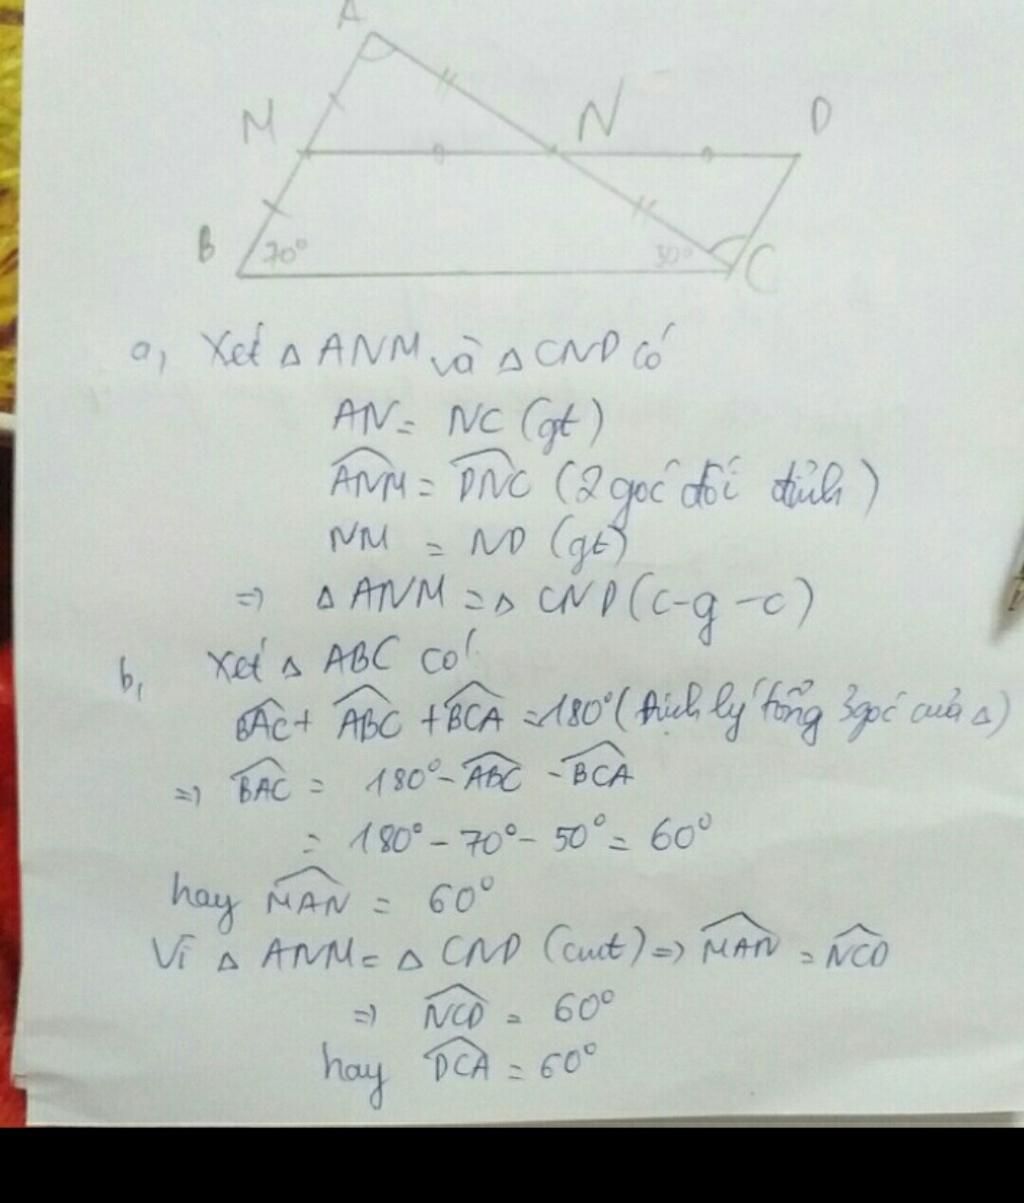 A
M N D
B 70° 50° C
a, Xét △ ANM và △ CND có
AN = NC (gt)
\widehat{ANM} = \widehat{DNC} (2 góc đối đỉnh)
NM = ND (gt)
=> △ ANM = △ CND (c-g-c)
b, Xét △ ABC có
\widehat{BAC} + \widehat{ABC} + \widehat{BCA} = 180° (định lý tổng 3 góc của △)
=> \widehat{BAC} = 180° - \widehat{ABC} - \widehat{BCA}
= 180° - 70° - 50° = 60°
hay \widehat{MAN} = 60°
Vì △ ANM = △ CND (cmt) => \widehat{MAN} = \widehat{NCD}
=> \widehat{NCD} = 60°
hay \widehat{DCA} = 60°